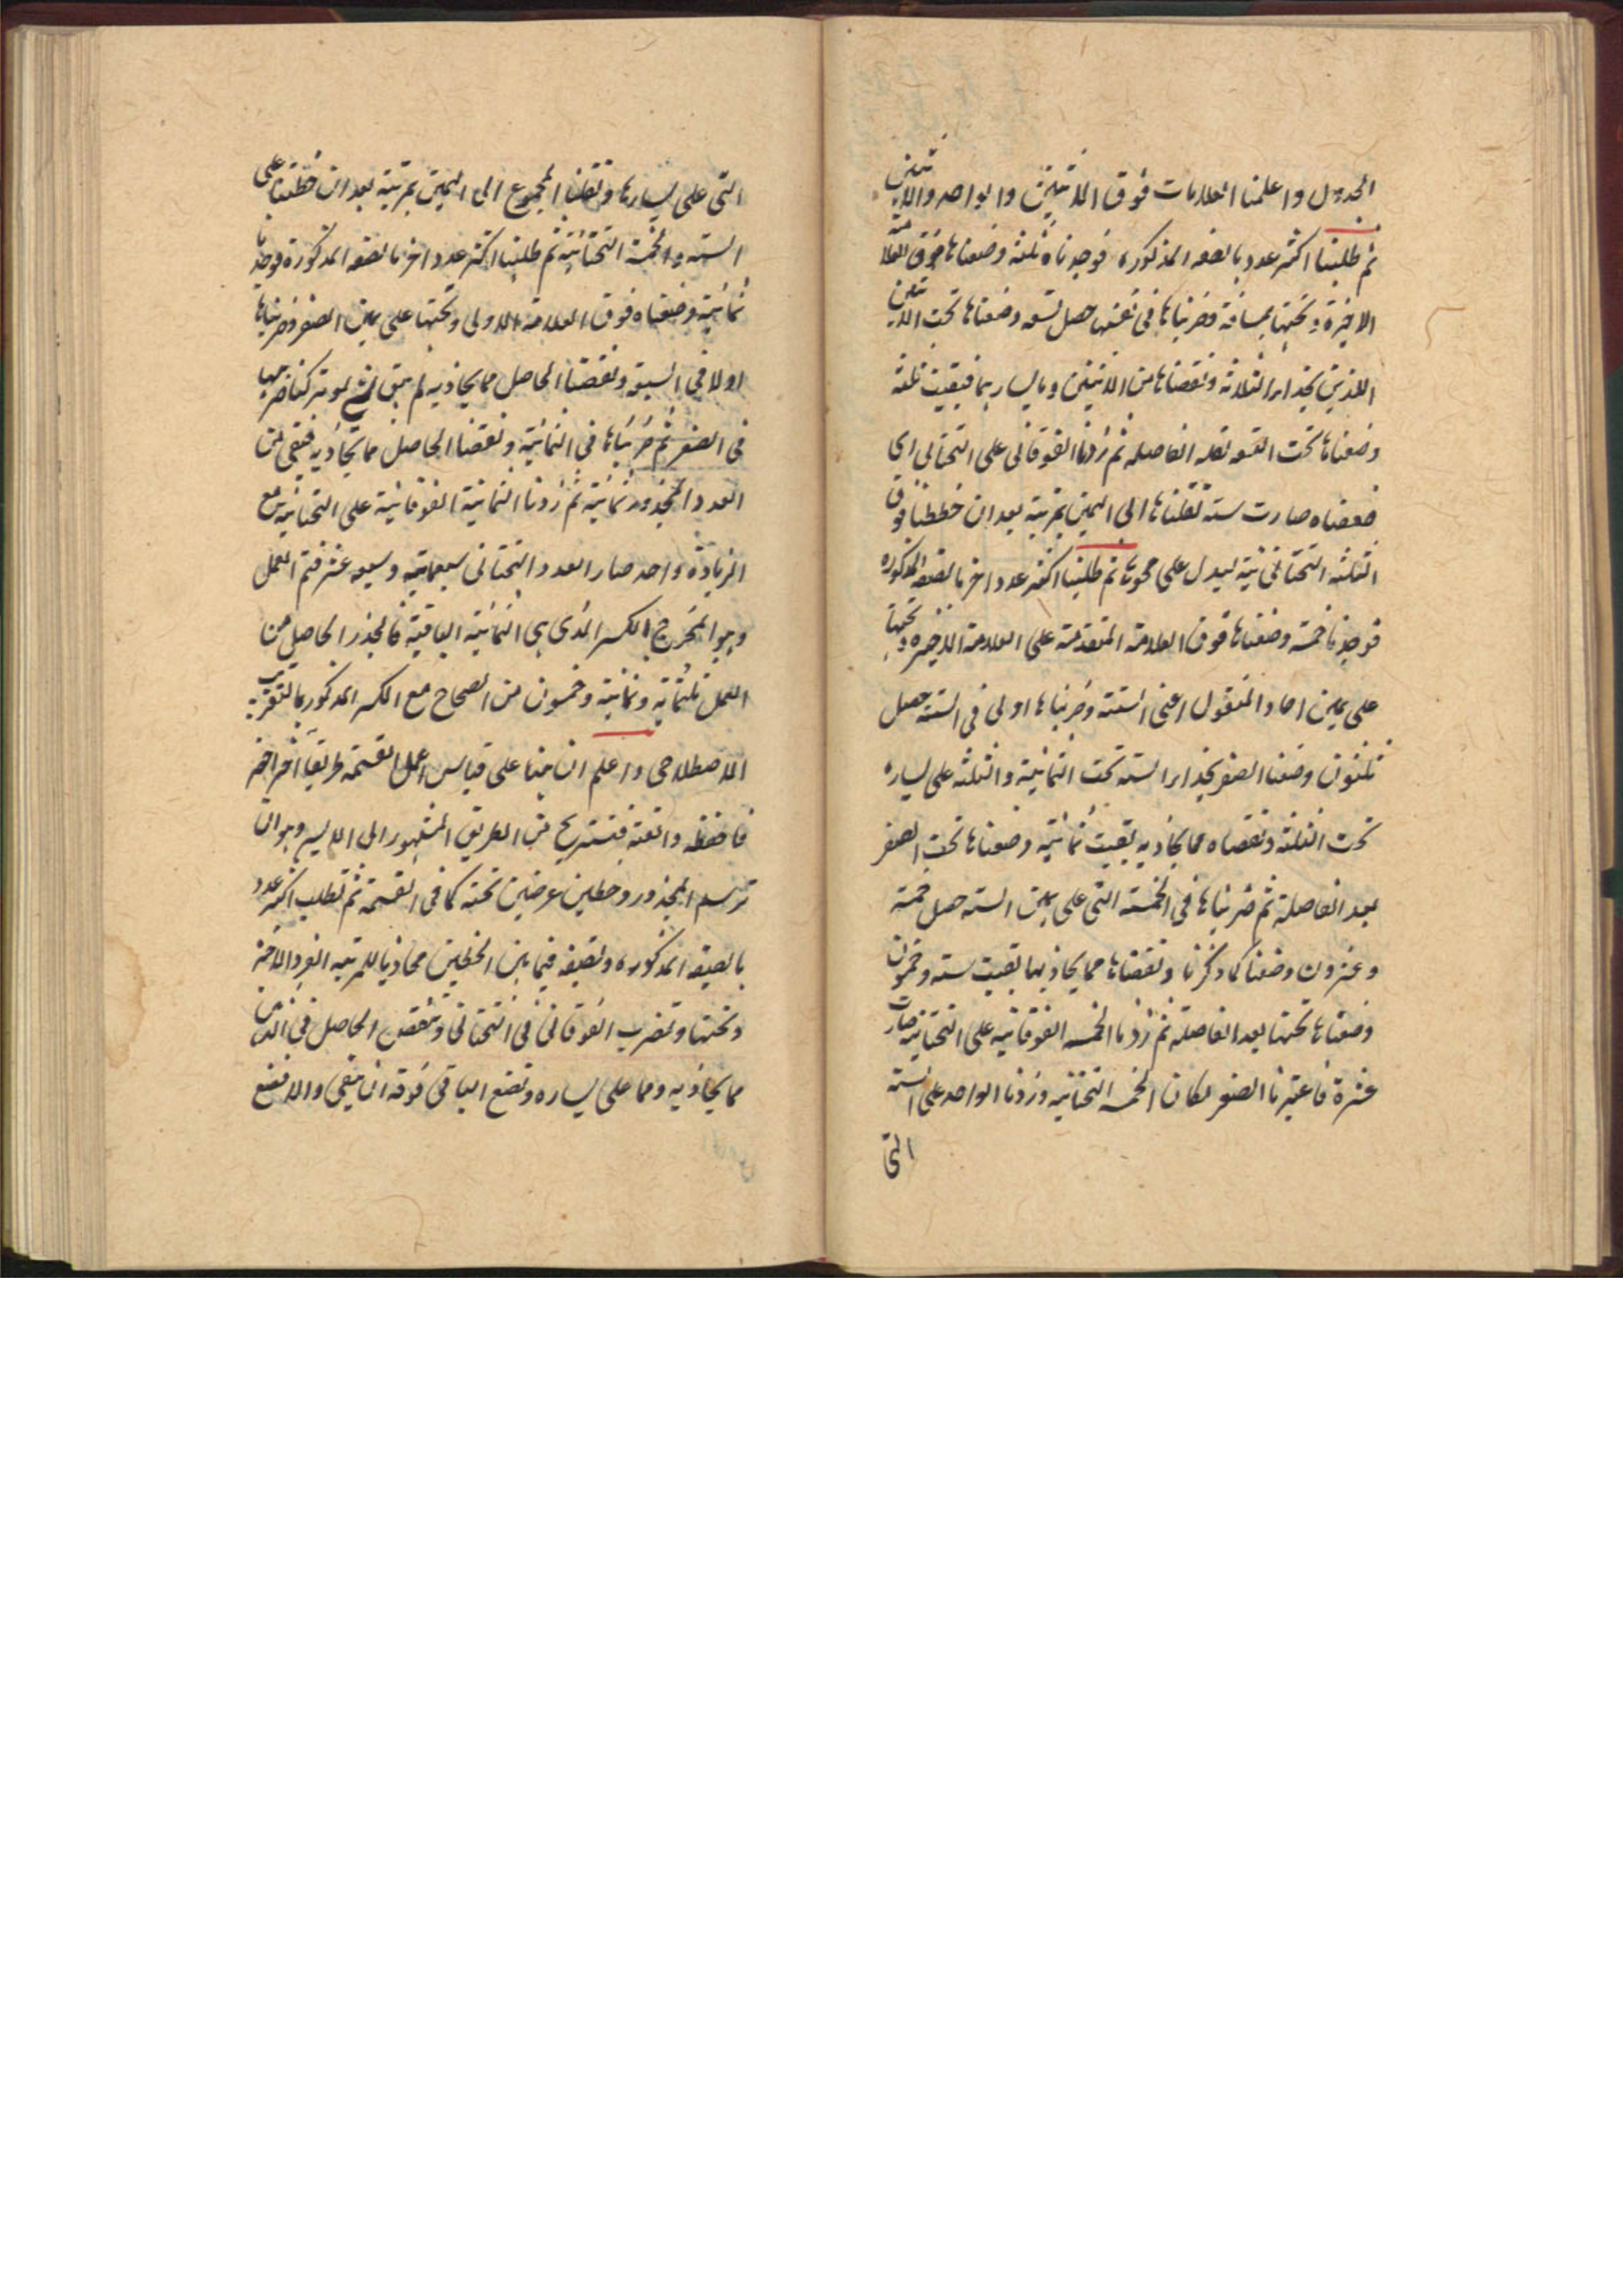 الجدول واعلمنا العلامات فوق الاثنين والواحد والاثنين
ثم طلبنا اكثر عدد بالصفه المذكوره فوجدناه ثلثه وضعناها فوق العلامة
الاخيرة وتحتها بمسافة وضربناها فى نفسها حصل تسعه وضعناها تحت الاثنين
اللذين بحذاء الثلاثه ونقصناها من الاثنين وما يسارهما فبقيت ثلثه
وضعناها تحت التسعه بعد الفاصله ثم زدنا الفوقانى على التحتانى اى
ضعفناه صارت سته نقلناها الى اليمين بمرتبة بعد ان خططنا فوق
الثلثه التحتانية ليدل على محوها ثم طلبنا اكثر عدد اخر بالصفه المذكوره
فوجدنا خمسة وضعناها فوق العلامة المتقدمة على العلامة الاخيره وتحتها
على يمين احاد المنقول اعنى الستة وضربناها اولى فى الستة حصل
ثلثون وضعنا الصفر بحذاء السته تحت الثمانية والثلثه على يساره
تحت الثلثة ونقصناه مما يحاذيه بقيت ثمانية وضعناها تحت الصفر
بعد الفاصلة ثم ضربناها فى الخمسه التى على يمين السته حصل خمسة
وعشرون وضعنا كما ذكرنا ونقصناها مما يحاذيها بقيت سته وخمسون
وضعناها تحتها بعد الفاصلة ثم زدنا الخمسه الفوقانيه على التحتانيه صارت
عشرة فاعتبرنا الصفر مكان الخمسه التحتانيه وزدنا الواحد على الستة
التى
التى على يسارها ونقلنا المجموع الى اليمين بمرتبة بعد ان خططنا على
السته والخمسة التحتانية ثم طلبنا اكثر عدد اخر بالصفه المذكورة فوجدنا
ثمانية وضعناه فوق العلامة الاولى وتحتها على يمين الصفر وضربناها
اولا فى السبعة ونقصنا الحاصل مما يحاذيه لم يبق شئ ثم تركنا ضربها
فى الصفر ثم ضربناها فى الثمانية ونقصنا الحاصل مما يحاذيه فبقى من
العدد المجذور ثمانية ثم زدنا الثمانية الفوقانية على التحتانيه مع
الزيادة واحد صار العدد التحتانى سبعمائة وسبعه عشر فتم العمل
وهو المخرج الكسر الذى هى الثمانية الباقية فالجذر الحاصل من
العمل ثلثمائه وثمانية وخمسون من الصحاح مع الكسر المذكور بالتقريب
الاصطلاحى واعلم ان هنا على قياس عمل القسمة طريقا اخر اخترعه
فاحفظه واتقنه فتستريح من الطريق المشهور الى الايسر وهو ان
ترسم المجذور وخطين عرضين تحته كما فى القسمة ثم تطلب اكثر عدد
بالصفه المذكوره وتضعه فيما بين الخطين محاذيا للمرتبه الفرد الاخيرة
وتحتها وتضرب الفوقانى فى التحتانى وتنقص الحاصل فى الذهن
مما يحاذيه ومما على يساره وتضع الباقى فوقه ان بقى والا فتضع